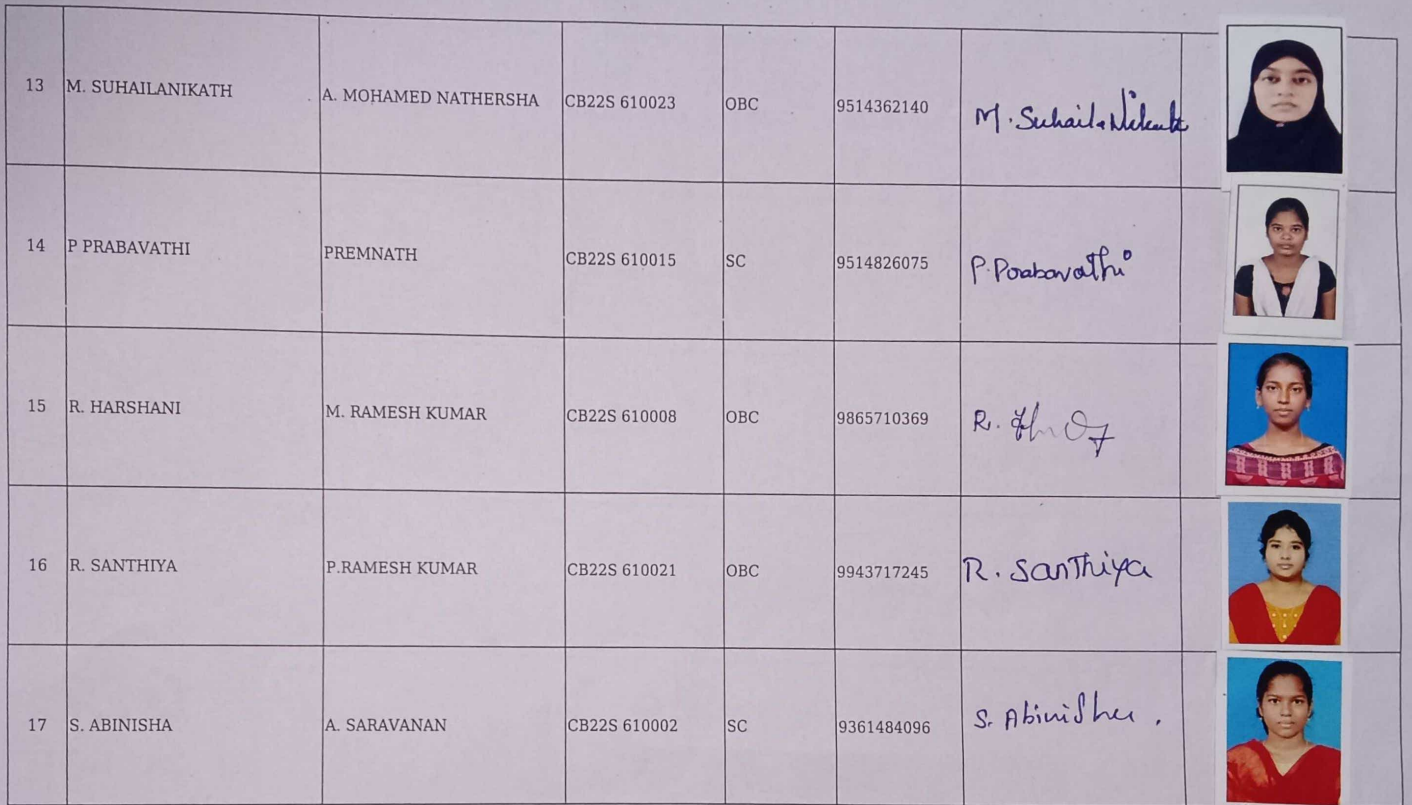 13 M. SUHAILANIKATH A. MOHAMED NATHERSHA CB22S 610023 OBC 9514362140 M. Suhaila Nikath
14 P PRABAVATHI PREMNATH CB22S 610015 SC 9514826075 P. Prabavathi
15 R. HARSHANI M. RAMESH KUMAR CB22S 610008 OBC 9865710369 R.
16 R. SANTHIYA P.RAMESH KUMAR CB22S 610021 OBC 9943717245 R. Santhiya
17 S. ABINISHA A. SARAVANAN CB22S 610002 SC 9361484096 S. Abinisha .